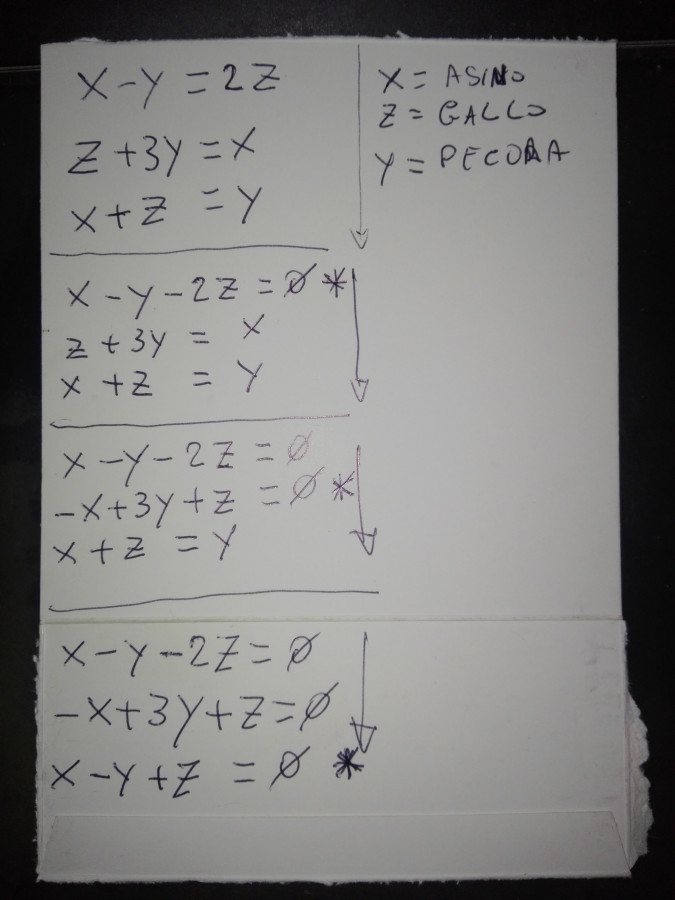 X-Y=2Z
Z+3Y=X
X+Z=Y
X=ASINO
Z=GALLO
Y=PECORA
X-Y-2Z=Ø*
Z+3Y=X
X+Z=Y
X-Y-2Z=Ø
-X+3Y+Z=Ø*
X+Z=Y
X-Y-2Z=Ø
-X+3Y+Z=Ø
X-Y+Z=Ø*